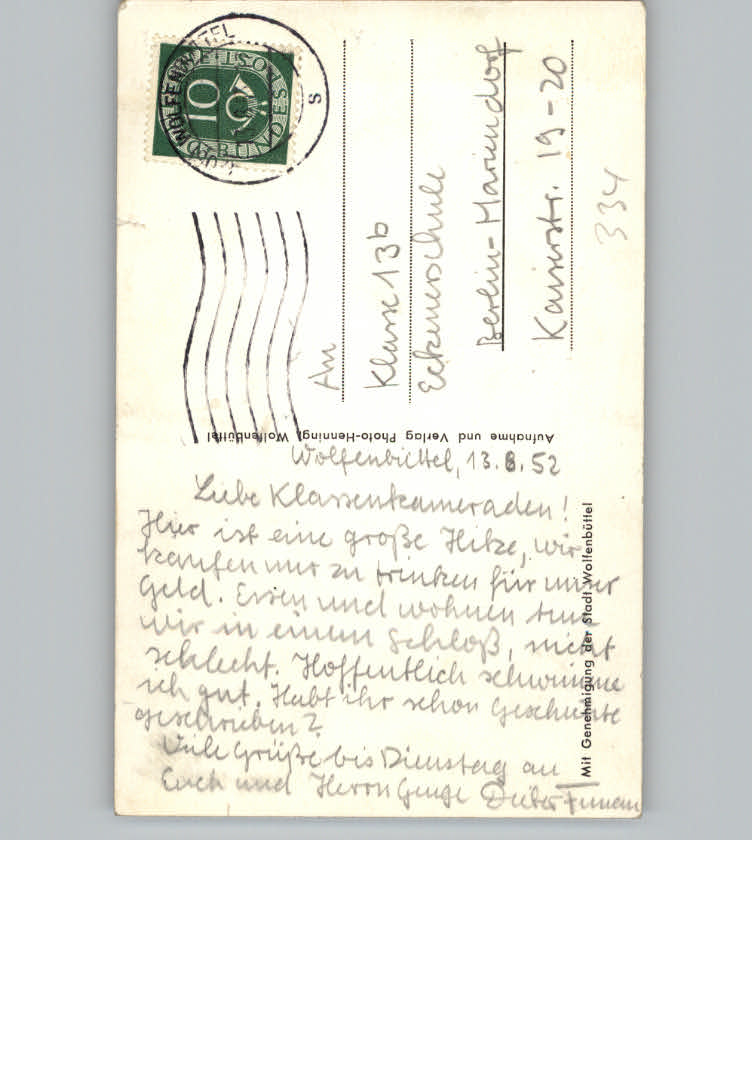 WOLFENBÜTTEL
DEUTSCHE BUNDESPOST
10
s
An
Klasse 13b
Eckenerschule
Berlin-Mariendorf
Kaiserstr. 19-20
334
Aufnahme und Verlag Photo-Henning, Wolfenbüttel
Mit Genehmigung der Stadt Wolfenbüttel
Wolfenbüttel, 13.8.52
Liebe Klassenkameraden!
Hier ist eine große Hitze, wir
kaufen nur zu trinken für unser
Geld. Essen und wohnen tun
wir in einem Schloß, nicht
schlecht. Hoffentlich schwimme
ich gut. Habt ihr schon Geschichte
geschrieben?
Viele Grüße bis Dienstag an
Euch und Herrn Dieter